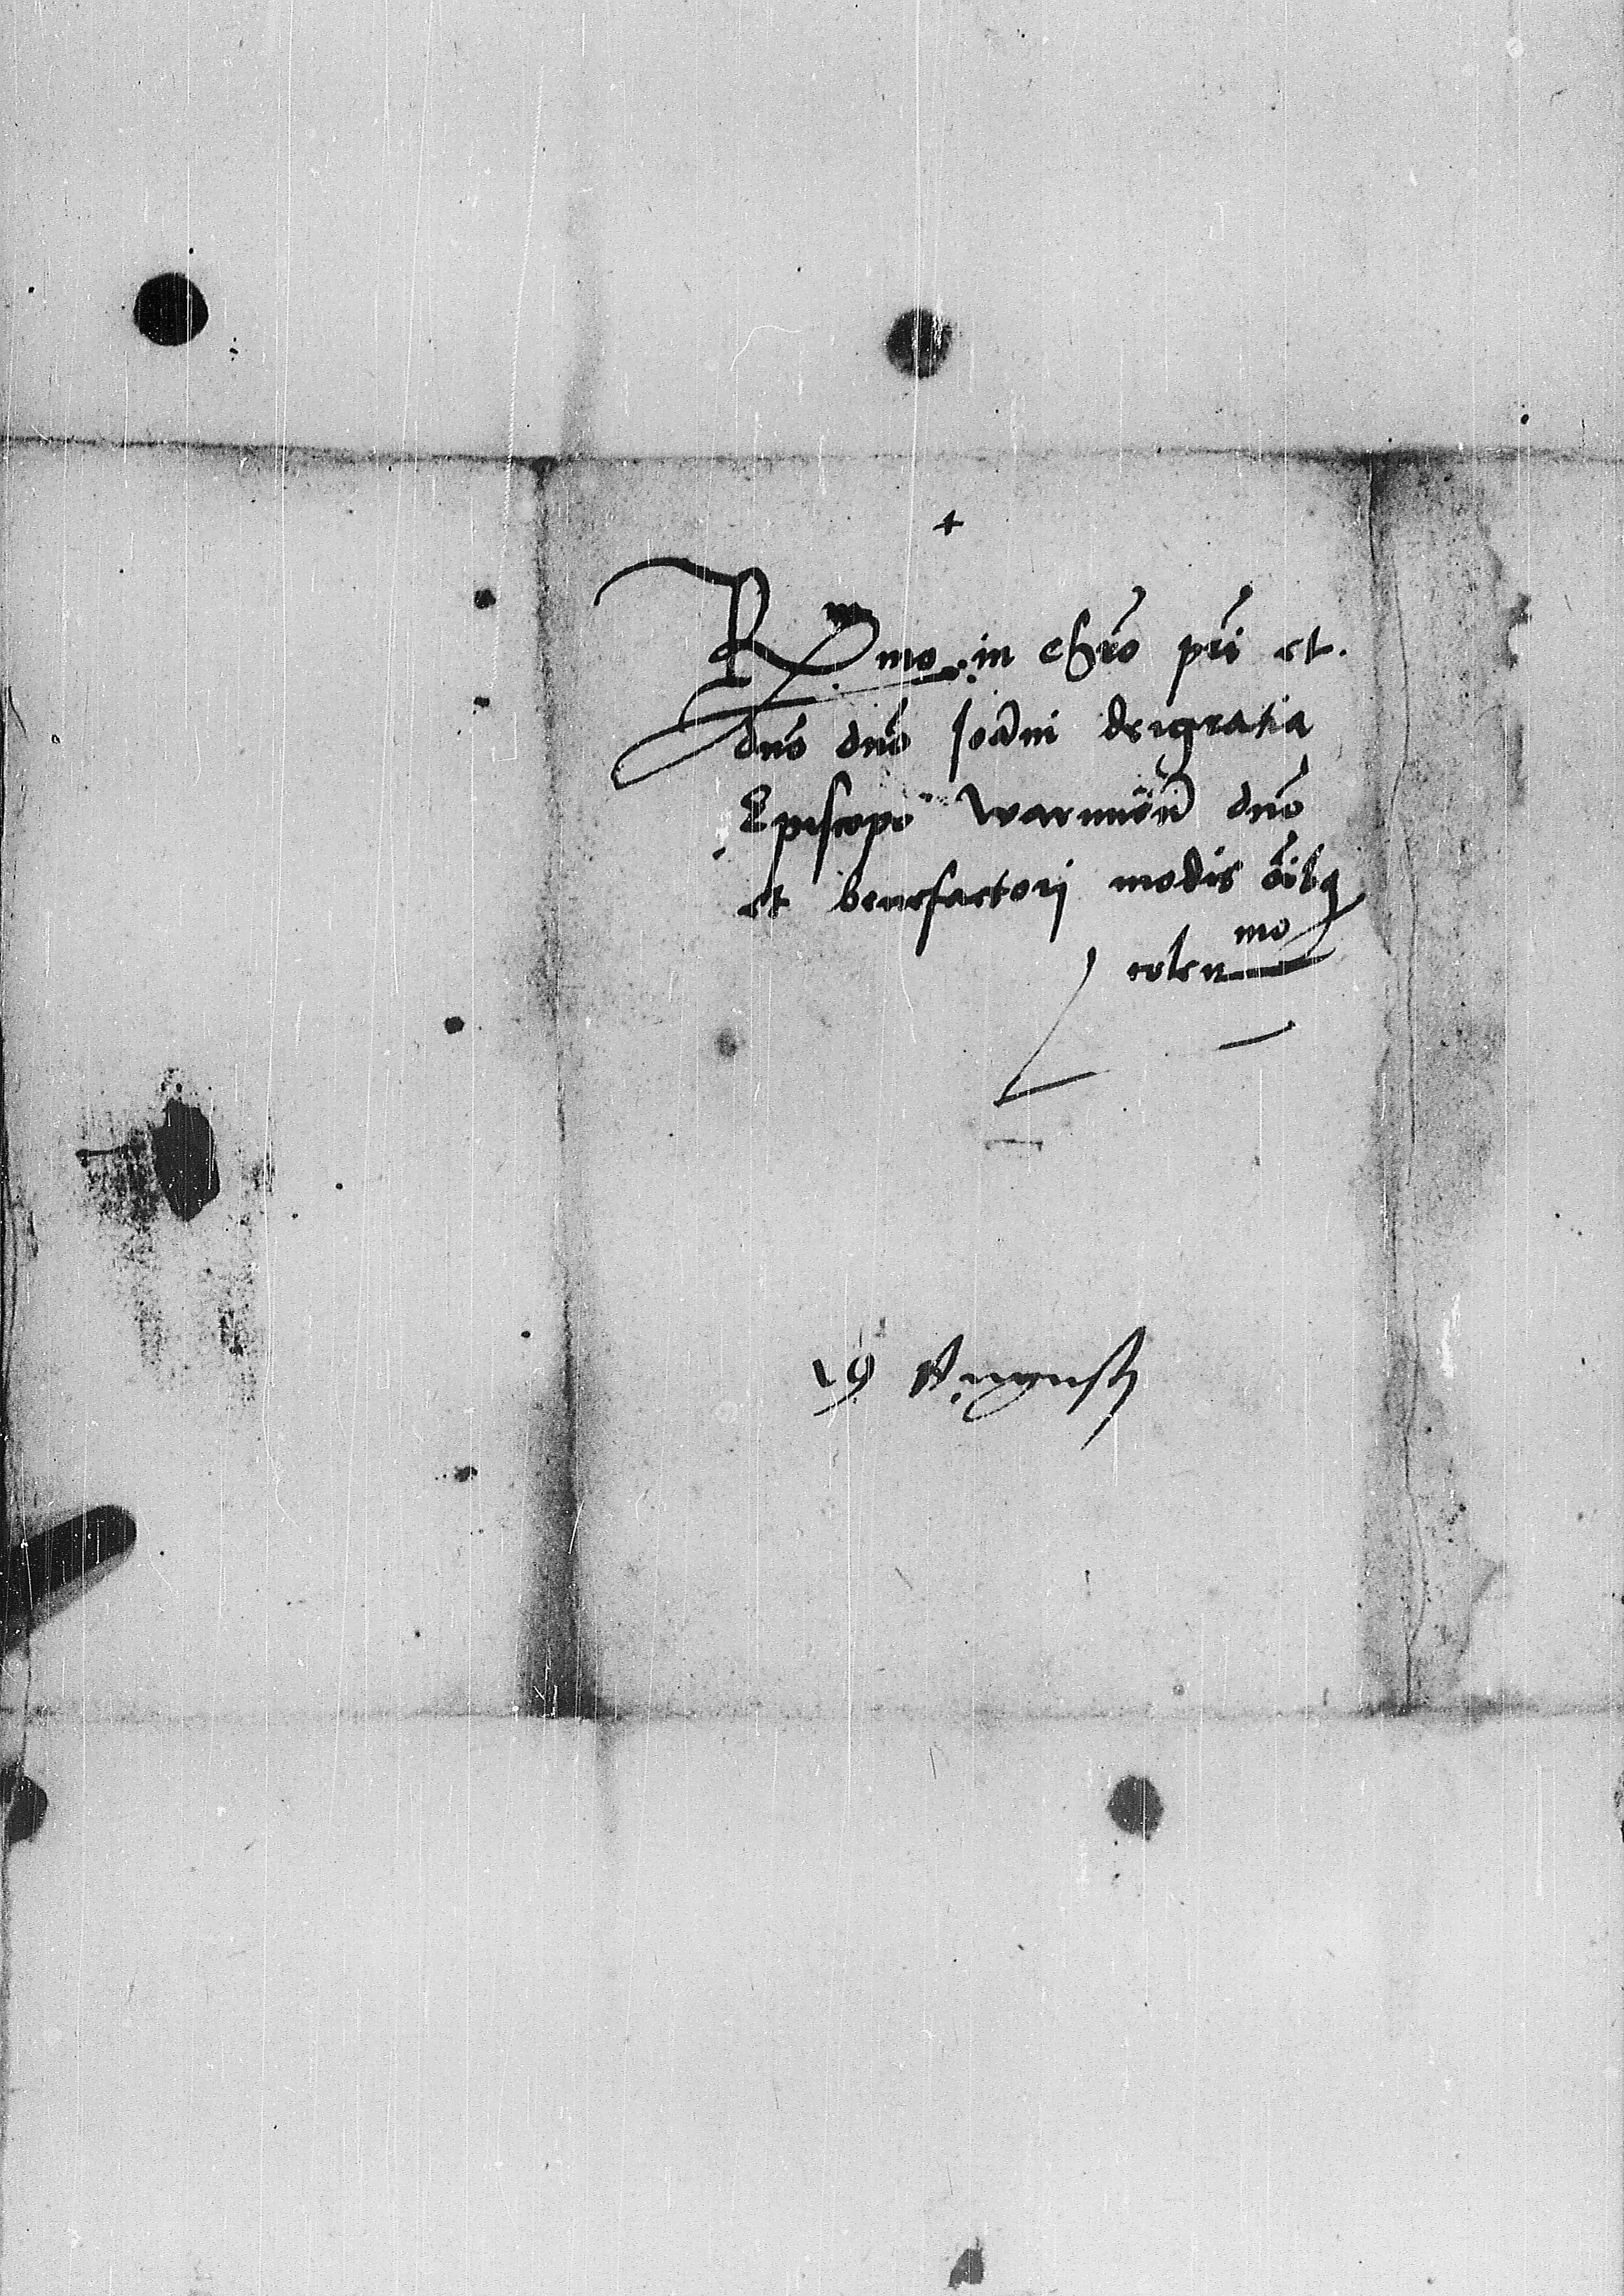 +
R mo in chro pri et
dno dno Joanni dei gratia
Episcopo warmien dno
et benefactori modis oibq
colen mo
19 Augusti